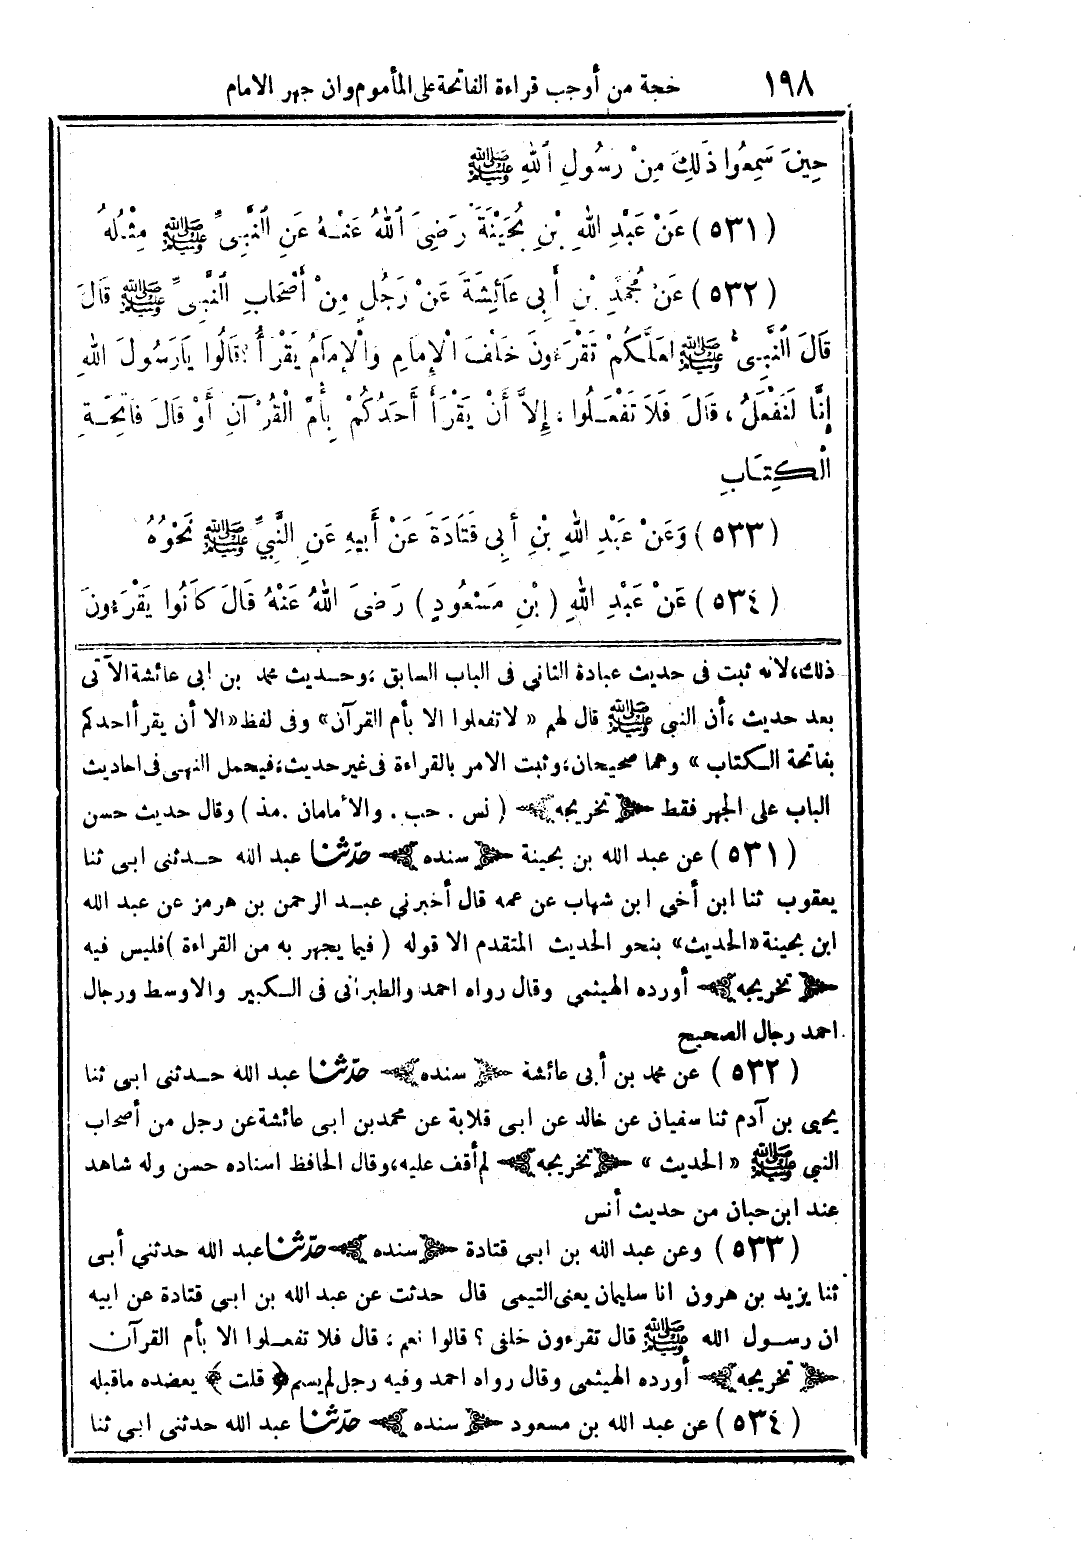 ١٩٨ حجة من أوجب قراءة الفاتحة على المأموم وان جهر الامام
حِينَ سَمِعُوا ذَلِكَ مِنْ رَسُولِ اللهِ ﷺ
(٥٣١) عَنْ عَبْدِ اللهِ بْنِ بُحَيْنَةَ رَضِىَ اللهُ عَنْهُ عَنِ النَّبِىِّ ﷺ مِثْلُهُ
(٥٣٢) عَنْ مُحَمَّدِ بْنِ أَبِى عَائِشَةَ عَنْ رَجُلٍ مِنْ أَصْحَابِ النَّبِىِّ ﷺ قَالَ
قَالَ النَّبِىُّ ﷺ لَعَلَّكُمْ تَقْرَءُونَ خَلْفَ الْإِمَامِ وَالْإِمَامُ يَقْرَأُ؟ قَالُوا يَارَسُولَ اللهِ
إِنَّا لَنَفْعَلُ، قَالَ فَلَا تَفْعَلُوا، إِلاَّ أَنْ يَقْرَأَ أَحَدُكُمْ بِأُمِّ الْقُرْآنِ أَوْ قَالَ فَاتِحَةِ
الْكِتَابِ
(٥٣٣) وَعَنْ عَبْدِ اللهِ بْنِ أَبِى قَتَادَةَ عَنْ أَبِيهِ عَنِ النَّبِيِّ ﷺ نَحْوُهُ
(٥٣٤) عَنْ عَبْدِ اللهِ (بْنِ مَسْعُودٍ) رَضِىَ اللهُ عَنْهُ قَالَ كَانُوا يَقْرَءُونَ
ذلك، لانه ثبت فى حديث عبادة الثاني فى الباب السابق، وحديث محمد بن ابى عائشة الآتى
بعد حديث، أن النبي ﷺ قال لهم «لا تفعلوا الا بأم القرآن» وفى لفظ «الا أن يقرأ احدكم
بفاتحة الكتاب» وهما صحيحان، وثبت الامر بالقراءة فى غير حديث، فيحمل النهى فى احاديث
الباب على الجهر فقط ﴿تخريجه﴾ (نس . حب . والأمامان . مذ) وقال حديث حسن
(٥٣١) عن عبد الله بن بحينة ﴿سنده﴾ حدّثنا عبد الله حدثنى ابى ثنا
يعقوب ثنا ابن أخي ابن شهاب عن عمه قال أخبرني عبد الرحمن بن هرمز عن عبد الله
ابن بحينة «الحديث» بنحو الحديث المتقدم الا قوله (فيما يجهر به من القراءة) فليس فيه
﴿تخريجه﴾ أورده الهيثمي وقال رواه احمد والطبرانى فى الكبير والاوسط ورجال
احمد رجال الصحيح
(٥٣٢) عن محمد بن أبى عائشة ﴿سنده﴾ حدّثنا عبد الله حدثنى ابى ثنا
يحيى بن آدم ثنا سفيان عن خالد عن ابى قلابة عن محمد بن ابى عائشة عن رجل من أصحاب
النبي ﷺ «الحديث» ﴿تخريجه﴾ لم أقف عليه، وقال الحافظ اسناده حسن وله شاهد
عند ابن حبان من حديث أنس
(٥٣٣) وعن عبد الله بن ابى قتادة ﴿سنده﴾ حدّثنا عبد الله حدثني أبى
ثنا يزيد بن هرون انا سليمان يعنى التيمى قال حدثت عن عبد الله بن ابى قتادة عن ابيه
ان رسول الله ﷺ قال تقرءون خلفى؟ قالوا نعم، قال فلا تفعلوا الا بأم القرآن
﴿تخريجه﴾ أورده الهيثمى وقال رواه احمد وفيه رجل لم يسم ﴿قلت﴾ يعضده ماقبله
(٥٣٤) عن عبد الله بن مسعود ﴿سنده﴾ حدّثنا عبد الله حدثنى ابى ثنا